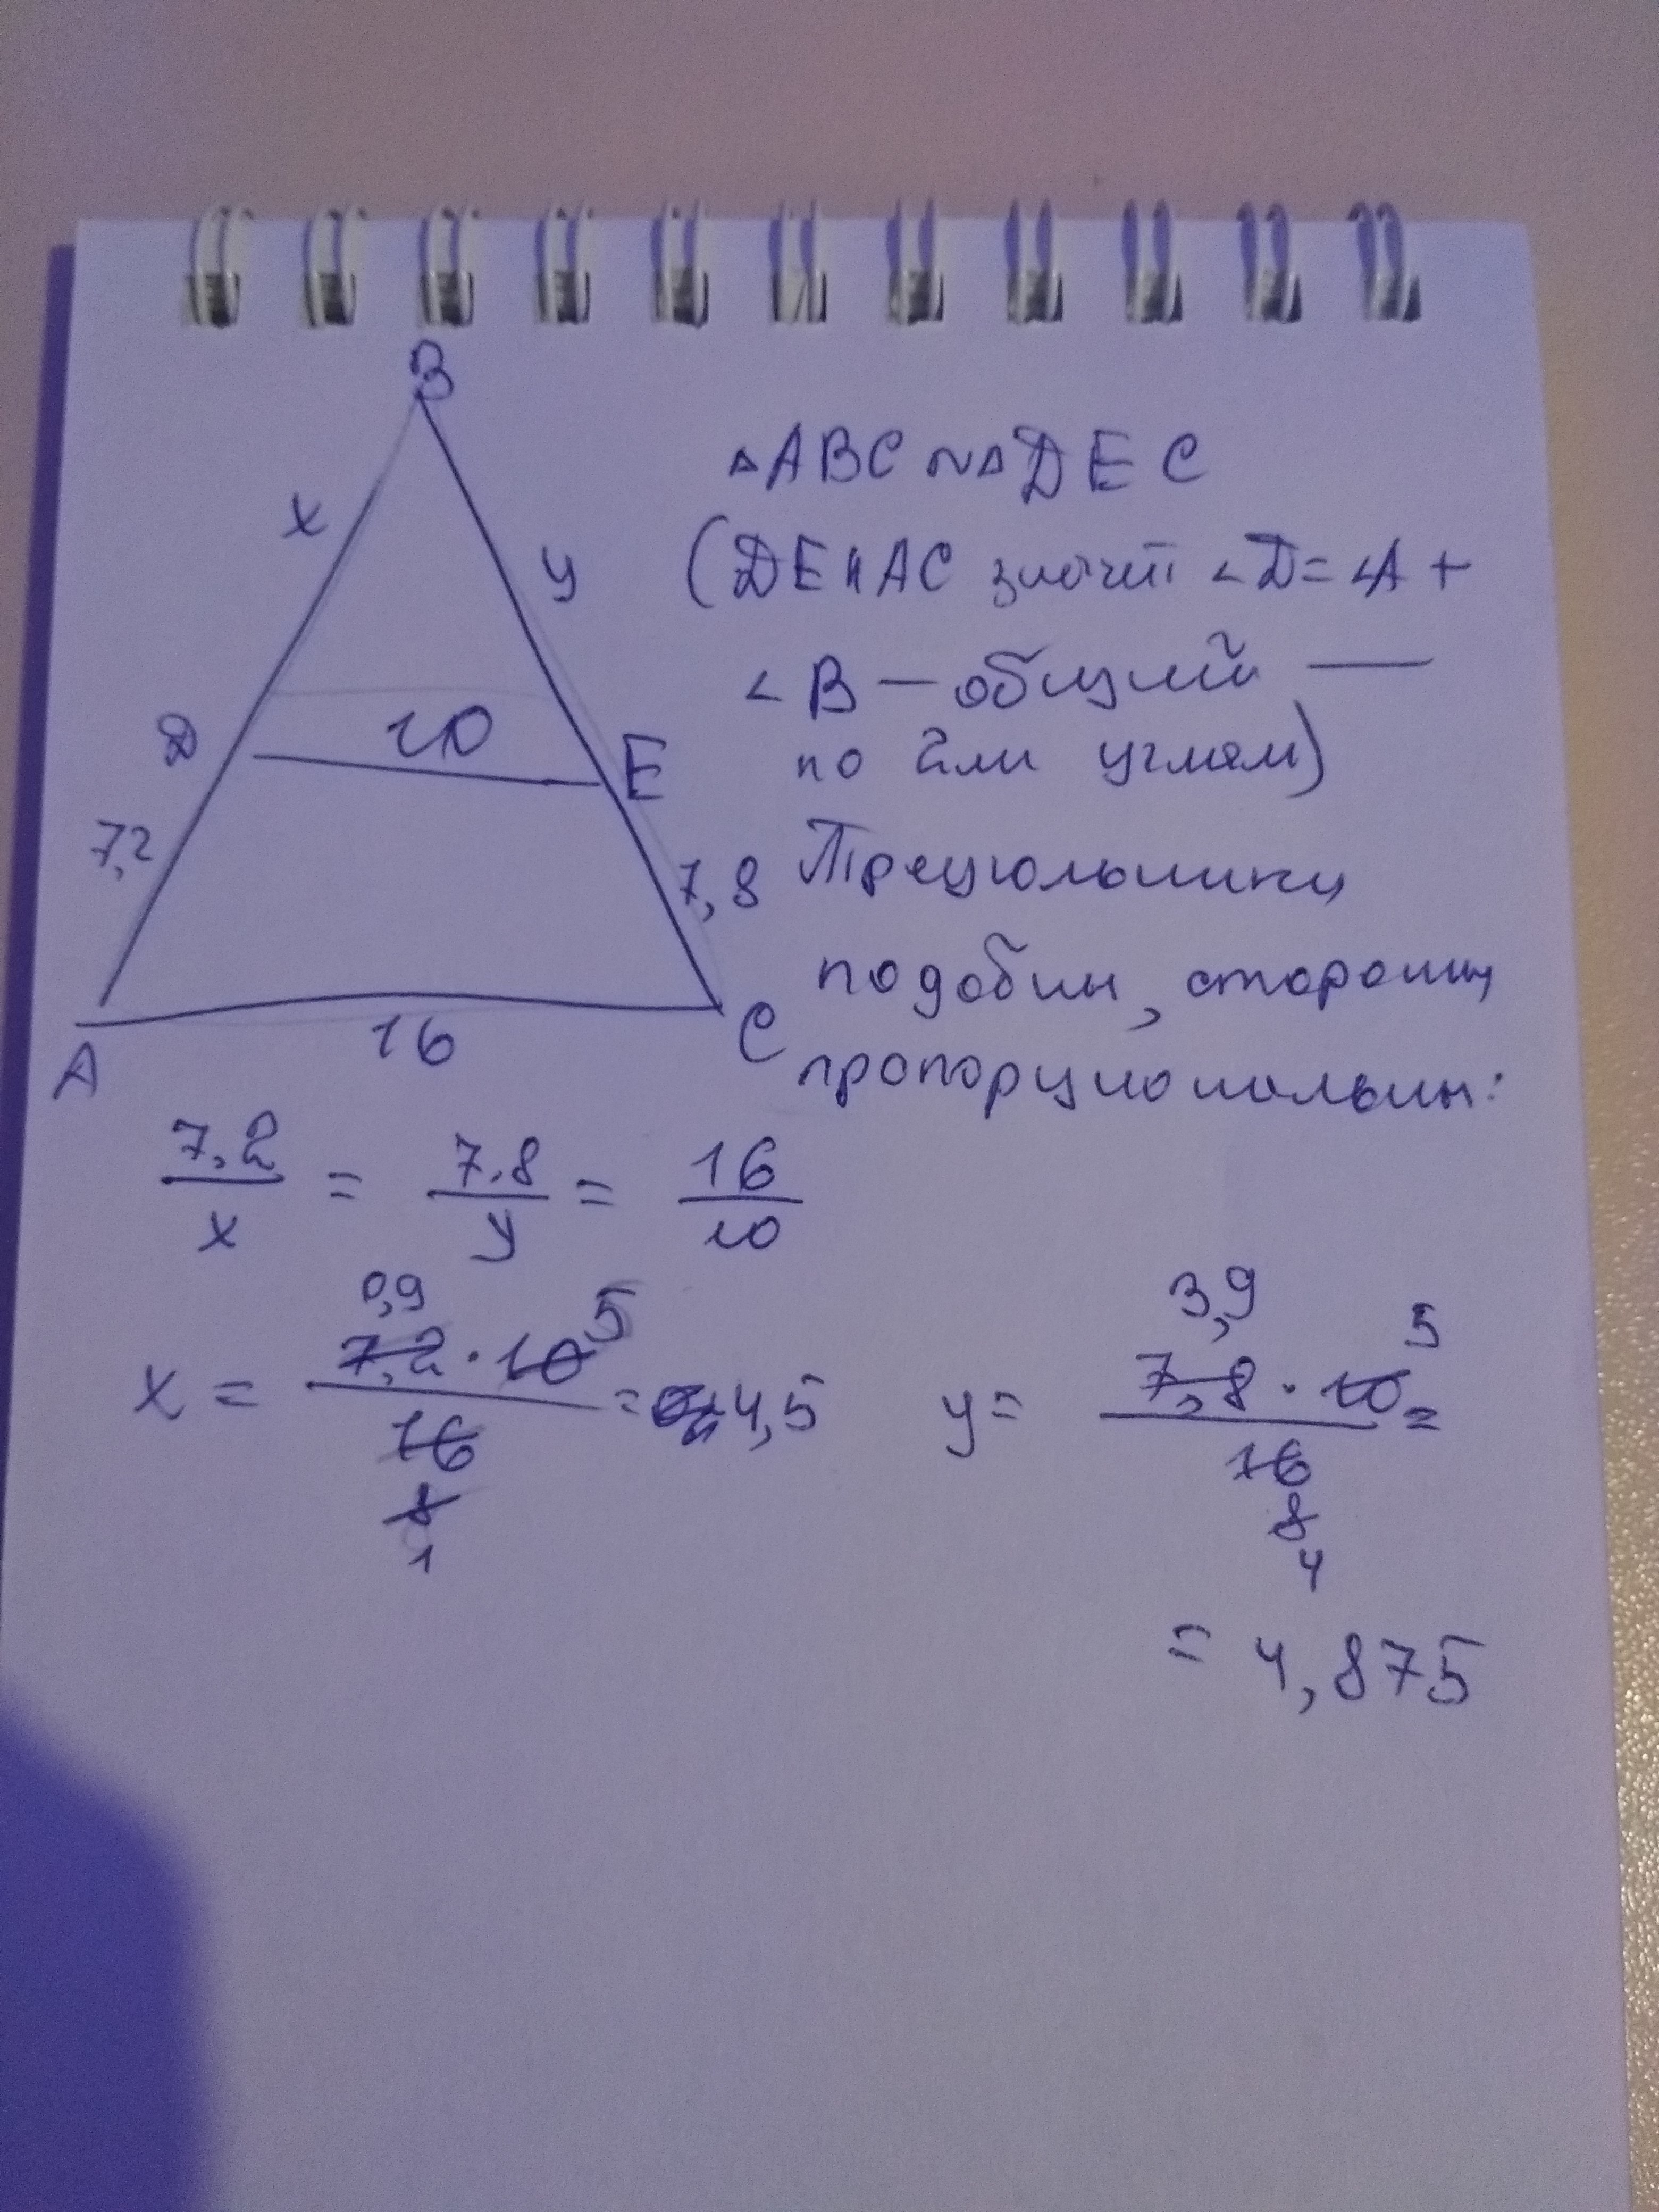 B
△ABC ~ △DEC
x
y
(DE || AC значит ∠D = ∠A +
∠B — общий —
D
10
E
по 2ум углам)
7,2
7,8
Треугольники
подобны, стороны
16
A
C
пропорциональны:
7,2/x = 7,8/y = 16/10
0,9 5 3,9 5
x = 7,2 · 10/16 = 4,5 y = 7,8 · 10/16 =
8 8
1 4
= 4,875